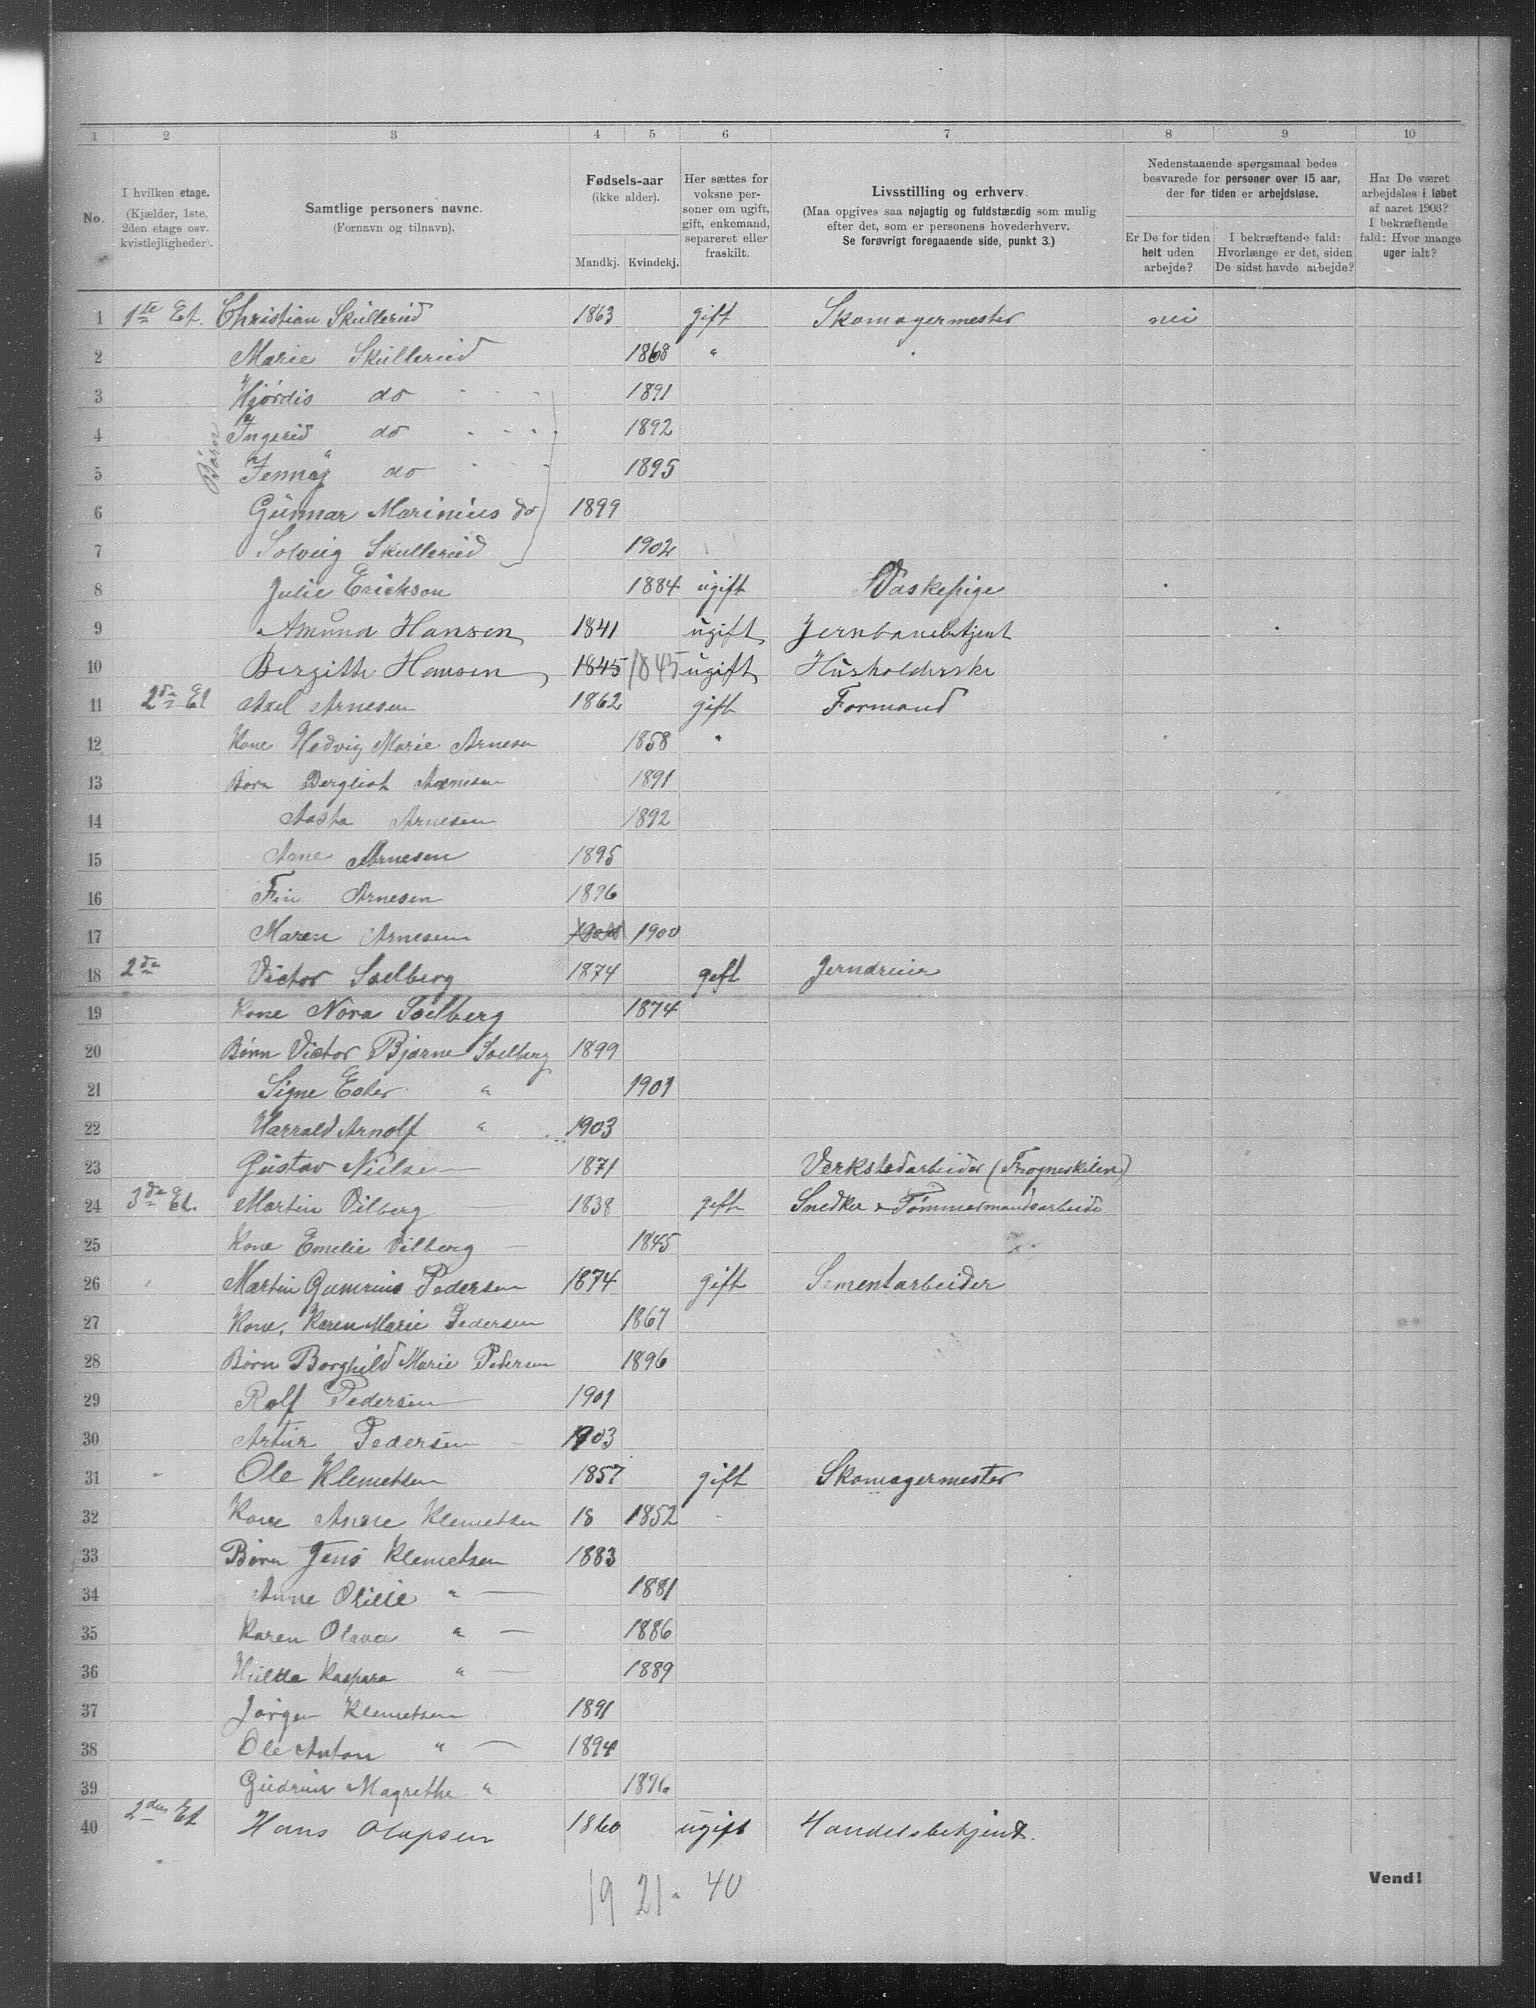 1 2 3 4 5 6 7 8 9 10
No.
I hvilken etage.
(Kjælder, 1ste,
2den etage osv.
kvistlejligheder).
Samtlige personers navne.
(Fornavn og tilnavn).
Fødsels-aar
(ikke alder).
Mandkj. Kvindekj.
Her sættes for
voksne per-
soner om ugift,
gift, enkemand,
separeret eller
fraskilt.
Livsstilling og erhverv.
(Maa opgives saa nøjagtig og fuldstændig som mulig
efter det, som er personens hovederhverv.
Se forøvrigt foregaaende side, punkt 3.)
Nedenstaaende spørgsmaal bedes
besvarede for personer over 15 aar,
der for tiden er arbejdsløse.
Er De for tiden
helt uden
arbejde?
I bekræftende fald:
Hvorlænge er det, siden
De sidst havde arbejde?
Har De været
arbejdsløs i løbet
af aaret 1903?
I bekræftende
fald: Hvor mange
uger ialt?
1 1ste Et. Christian Skullerud 1863 gift Skomagermester nei
2 Marie Skullerud 1868 "
3 Hjørdis do 1891
Børn
4 Ingerid do 1892
5 Jenny do 1895
6 Gunnar Marinius do 1899
7 Solveig Skullerud 1902
8 Julie Erickson 1884 ugift Vaskepige
9 Amund Hansen 1841 ugift Jernbanebetjent
10 Bergitte Hansen 1845 1845 ugift Husholderske
11 2de Et Axel Arnesen 1862 gift Formand
12 Kone Hedvig Marie Arnesen 1858 "
13 Børn Bergliot Arnesen 1891
14 Aasta Arnesen 1892
15 Arne Arnesen 1895
16 Fin Arnesen 1896
17 Maren Arnesen 1900
18 2de Victor Soelberg 1874 gift Jerndreier
19 Kone Nora Soelberg 1874
20 Børn Victor Bjarne Soelberg 1899
21 Signe Ester " 1901
22 Harrald Arnolf " 1903
23 Gustav Nielsen 1871 Verkstedarbeider (Frognerkilen)
24 3de Et. Martin Vilberg 1838 gift Snedker & Tømmermandsarbeide
25 Kone Emelie Vilberg 1845
26 Martin Gumrius Pedersen 1874 gift Sementarbeider
27 Kone. Karen Marie Pedersen 1867
28 Børn Borghild Marie Pedersen 1896
29 Rolf Pedersen 1901
30 Artur Pedersen 1903
31 " Ole Klemetsen 1857 gift Skomagermester
32 Kone Anne Klemetsen 18 1852
33 Børn Jens Klemetsen 1883
34 Anne Olille " 1881
35 Karen Olava " 1886
36 Hulda Kaspara " 1889
37 Jørgen Klemetsen 1891
38 Ole Anton " 1894
39 Gudrun Magrethe " 1896
40 2den Et Hans Olapsen 1860 ugift Handelsbetjent.
19 21 - 40
Vend!